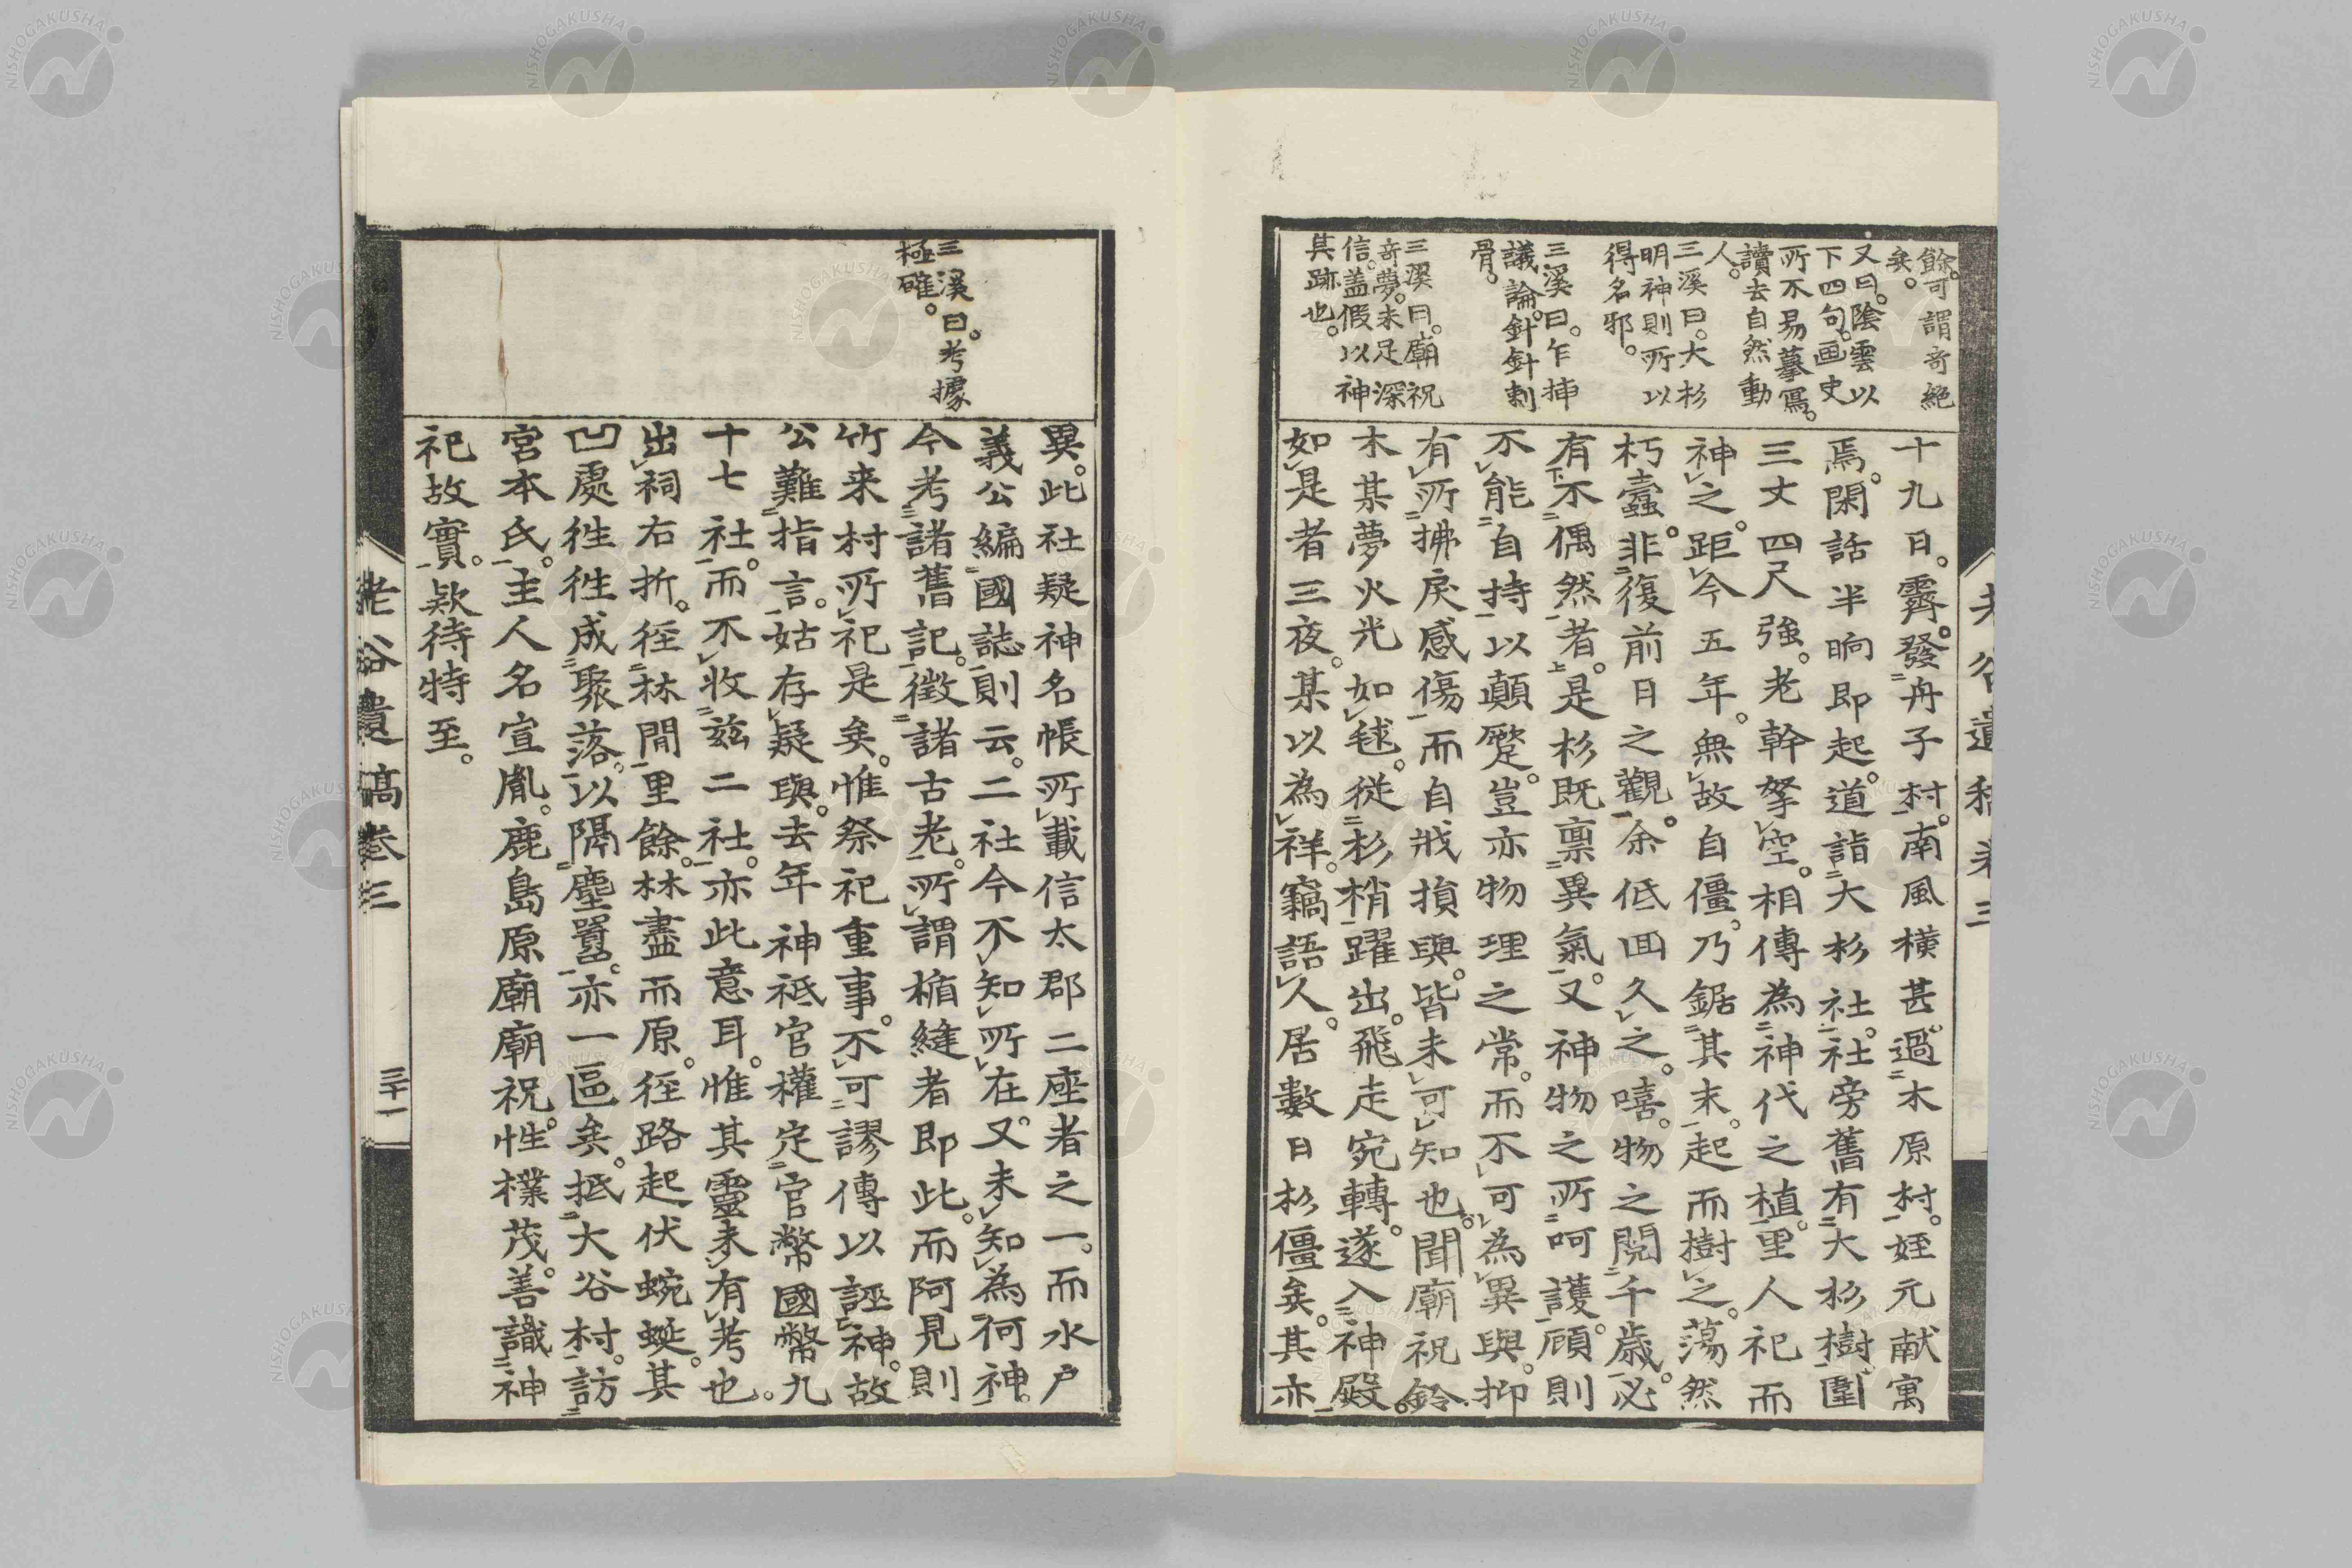 餘。可謂奇絕
矣。
又曰。陰雲以
下四句。画史
所不易摹寫。
讀去自然動
人。
三溪曰。大杉
明神則所以
得名邪。
三溪曰。乍揷
議論。針針刺
骨。
三溪曰。廟祝
奇夢。未足深
信。盖假以神
其跡也。
十九日。霽。發舟子村。南風橫甚。過木原村。姪元献寓
焉。閑話半晌即起。道詣大杉社。社旁舊有大杉樹。圍
三丈四尺強。老幹拏空。相傳為神代之植。里人祀而
神之。距今五年。無故自僵。乃鋸其末。起而樹之。蕩然
朽蠹。非復前日之觀。余低回久之。嘻。物之閱千歲。必
有不偶然者。是杉既禀異氣。又神物之所呵護。顧則
不能自持以顛蹷。豈亦物理之常。而不可為異與。抑
有所拂戾感傷而自戕損與。皆未可知也。聞廟祝鈴
木某夢火光如毬。從杉梢躍出。飛走宛轉。遂入神殿。
如是者三夜。某以為祥。竊語人。居數日杉僵矣。其亦
老谷遺稿卷三
異。此社疑神名帳所載信太郡二座者之一。而水戶
義公編國誌則云。二社今不知所在。又未知為何神。
今考諸舊記。徵諸古老。所謂楯縫者即此。而阿見則
竹来村所祀是矣。惟祭祀重事。不可謬傳以誣神。故
公難指言。姑存疑與。去年神祗官權定官幣國幣九
十七社。而不收茲二社。亦此意耳。惟其靈未有考也。
出祠右折。徑林間一里餘。林盡而原。徑路起伏蜿蜒。其
凹處徃徃成聚落。以隔塵囂。亦一區矣。抵大谷村。訪
宮本氏。主人名宣胤。鹿島原廟廟祝。性樸茂。善識神
祀故實。款待特至。
三溪曰。考據
極確。
老谷遺稿卷三
三十一